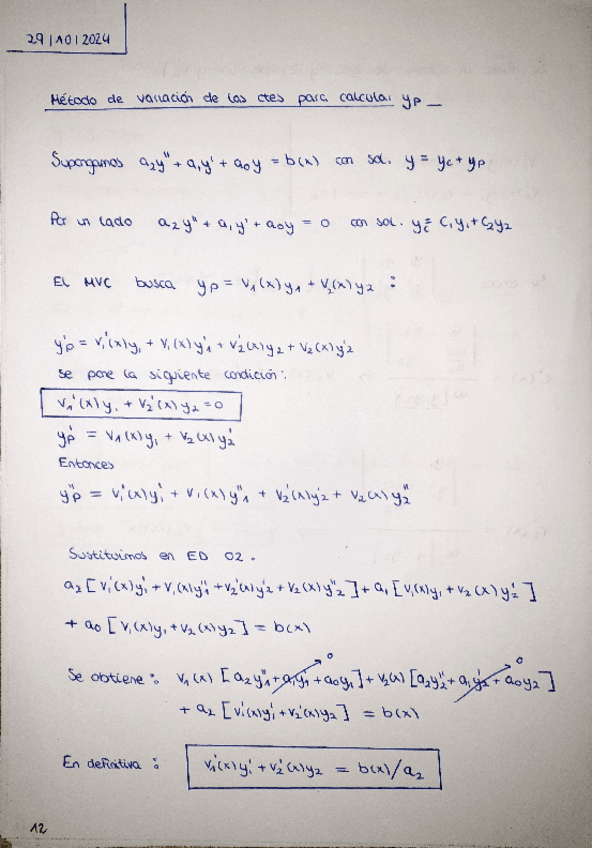 29/10/2024
Método de variación de las ctes para calcular yₚ
Supongamos a₂y'' + a₁y' + a₀y = b(x) con sol. y = y_c + yₚ
Por un lado a₂y'' + a₁y' + a₀y = 0 con sol. y_c = C₁y₁ + C₂y₂
El MVC busca yₚ = V₁(x)y₁ + V₂(x)y₂ :
y'ₚ = V₁'(x)y₁ + V₁(x)y'₁ + V₂'(x)y₂ + V₂(x)y'₂
se pone la siguiente condición:
V₁'(x)y₁ + V₂'(x)y₂ = 0
y'ₚ = V₁(x)y₁ + V₂(x)y₂'
Entonces
y''ₚ = V₁'(x)y₁' + V₁(x)y''₁ + V₂'(x)y'₂ + V₂(x)y₂''
Sustituimos en ED O2.
a₂[V₁'(x)y₁' + V₁(x)y₁'' + V₂'(x)y'₂ + V₂(x)y''₂] + a₁[V₁(x)y₁ + V₂(x)y₂']
+ a₀[V₁(x)y₁ + V₂(x)y₂] = b(x)
Se obtiene: V₁(x)[a₂y''₁ + a₁y'₁ + a₀y₁]⁰ + V₂(x)[a₂y₂'' + a₁y'₂ + a₀y₂]⁰
+ a₂[V₁'(x)y₁' + V₂'(x)y₂] = b(x)
En definitiva: V₁'(x)y₁' + V₂'(x)y₂ = b(x)/a₂
12